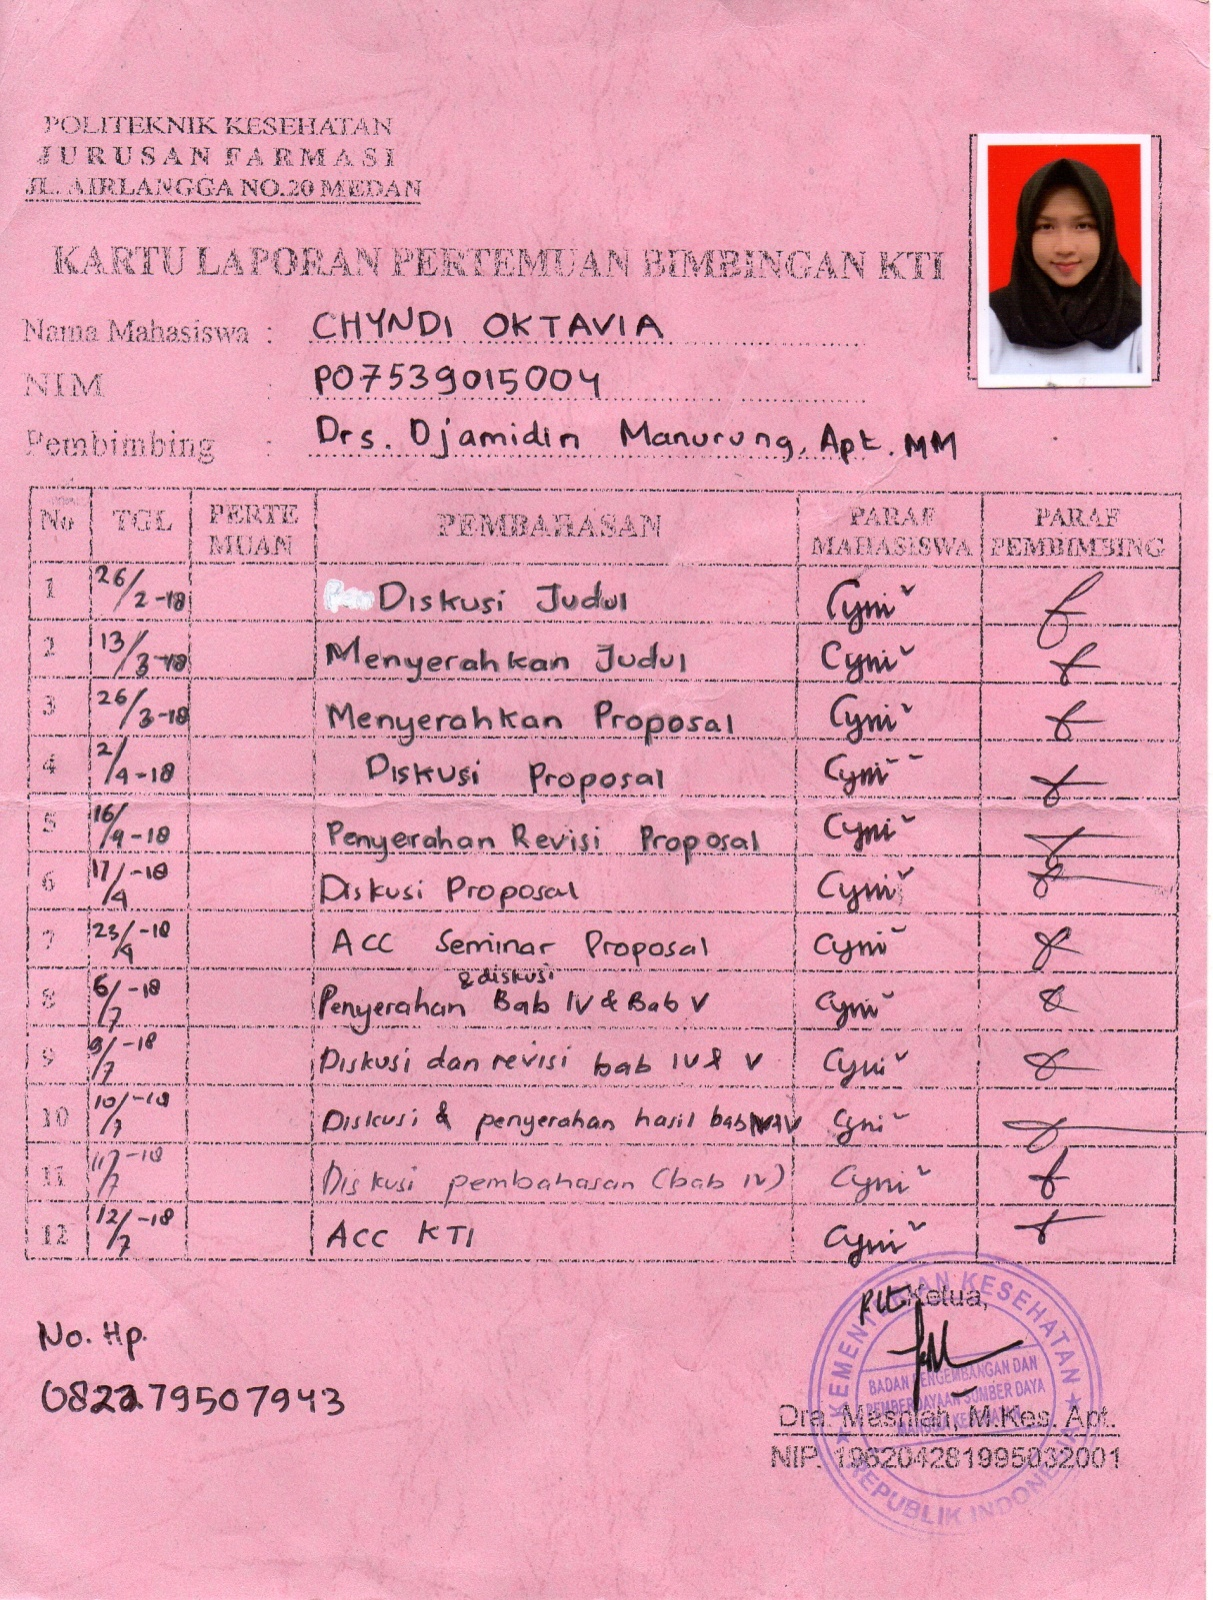 POLITEKNIK KESEHATAN
JURUSAN FARMASI
JL. AIRLANGGA NO.20 MEDAN
KARTU LAPORAN PERTEMUAN BIMBINGAN KTI
Nama Mahasiswa : CHYNDI OKTAVIA
NIM : P07539015004
Pembimbing : Drs. Djamidin Manurung, Apt. MM
No TGL PERTE MUAN PEMBAHASAN PARAF MAHASISWA PARAF PEMBIMBING
1 26/2-18 Diskusi Judul
2 13/3-18 Menyerahkan Judul
3 26/3-18 Menyerahkan Proposal
4 2/4-18 Diskusi Proposal
5 16/4-18 Penyerahan Revisi Proposal
6 17/4-18 Diskusi Proposal
7 23/4-18 ACC Seminar Proposal
8 6/7-18 Penyerahan & diskusi Bab IV & Bab V
9 9/7-18 Diskusi dan revisi bab IV & V
10 10/7-18 Diskusi & penyerahan hasil bab
11 11/7-18 Diskusi pembahasan (bab IV)
12 12/7-18 ACC KTI
Plt. Ketua,
No. Hp.
082279507943
Dra. Masniah, M.Kes. Apt.
NIP. 196204281995032001
KEMENTERIAN KESEHATAN
BADAN PENGEMBANGAN DAN
PEMBERDAYAAN SUMBER DAYA
MANUSIA KESEHATAN
REPUBLIK INDONESIA